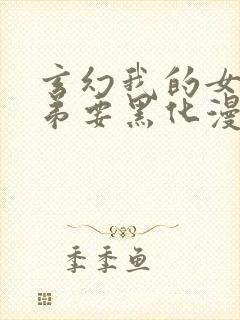 玄幻我的女
弟要黑化漫
季季鱼